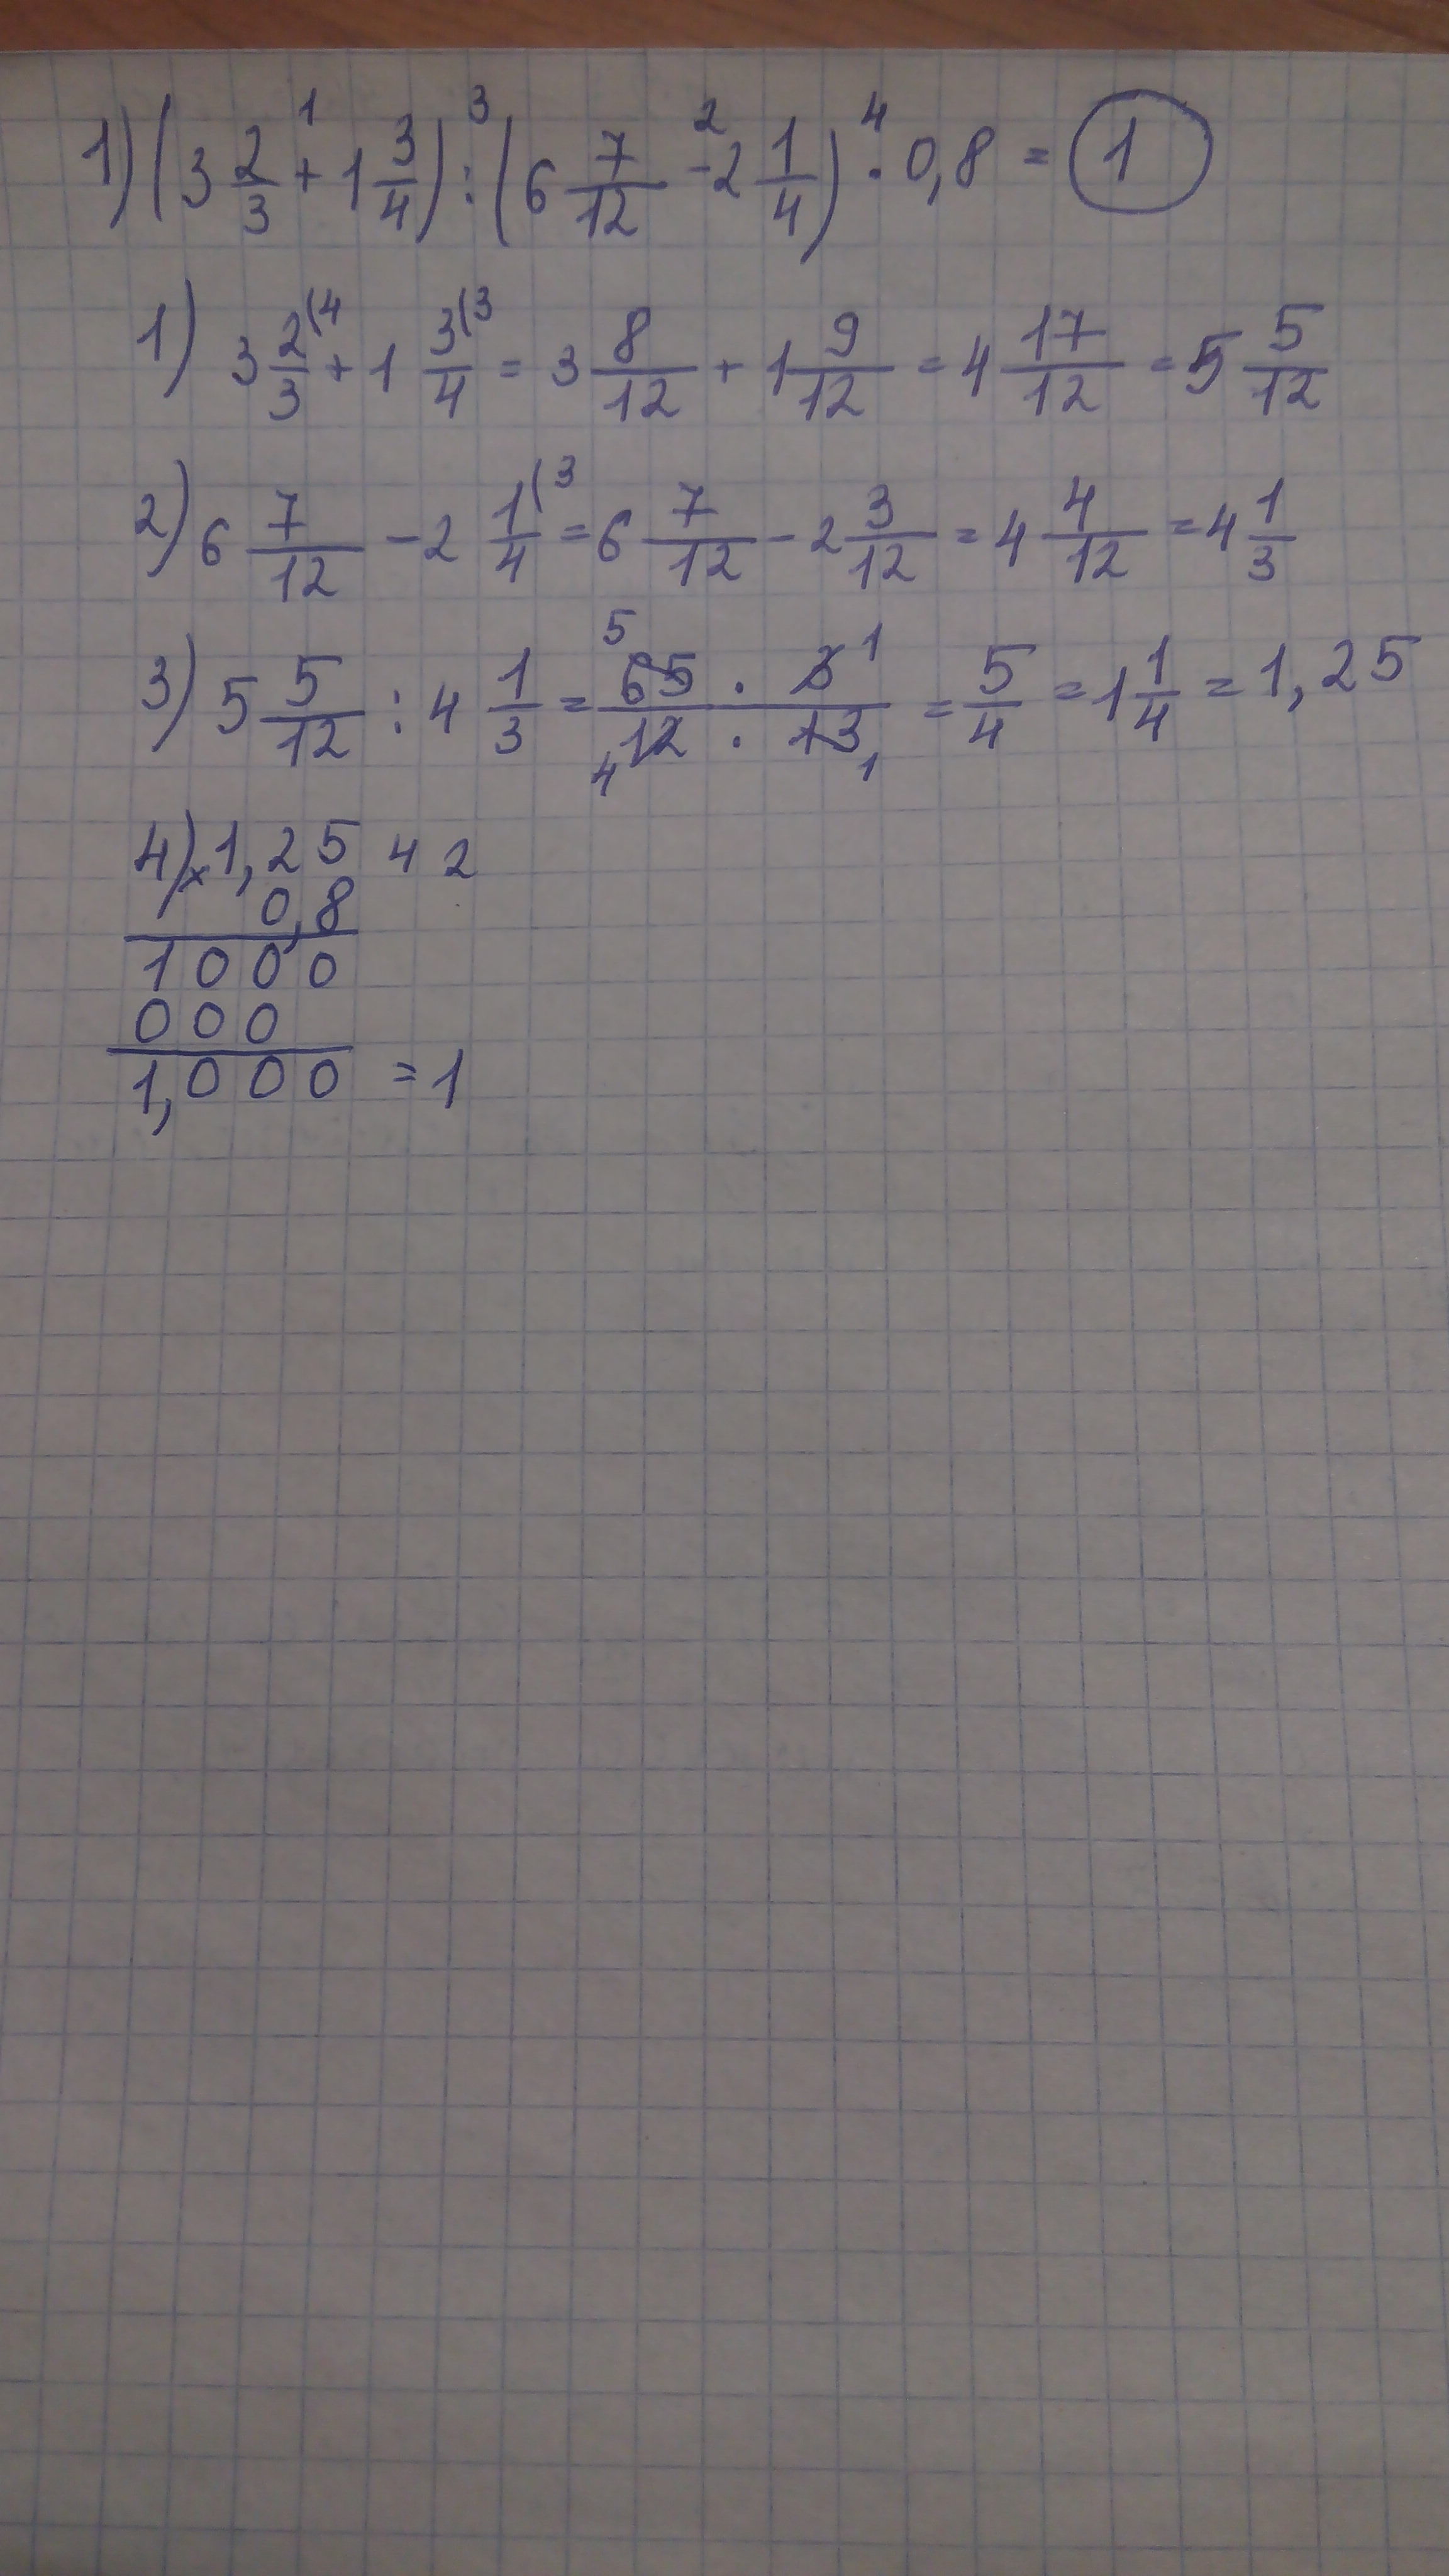 1) (3 2/3 + 1 3/4) : (6 7/12 - 2 1/4) · 0,8 = 1
1 3 2 4
1) 3 2/3 (4 + 1 3/4 (3 = 3 8/12 + 1 9/12 = 4 17/12 = 5 5/12
2) 6 7/12 - 2 1/4 (3 = 6 7/12 - 2 3/12 = 4 4/12 = 4 1/3
3) 5 5/12 : 4 1/3 = 65 · 3 / 12 · 13 = 5/4 = 1 1/4 = 1,25
5 1 4 1
4) × 1,25 4 2
0,8
1000
000
1,000 = 1